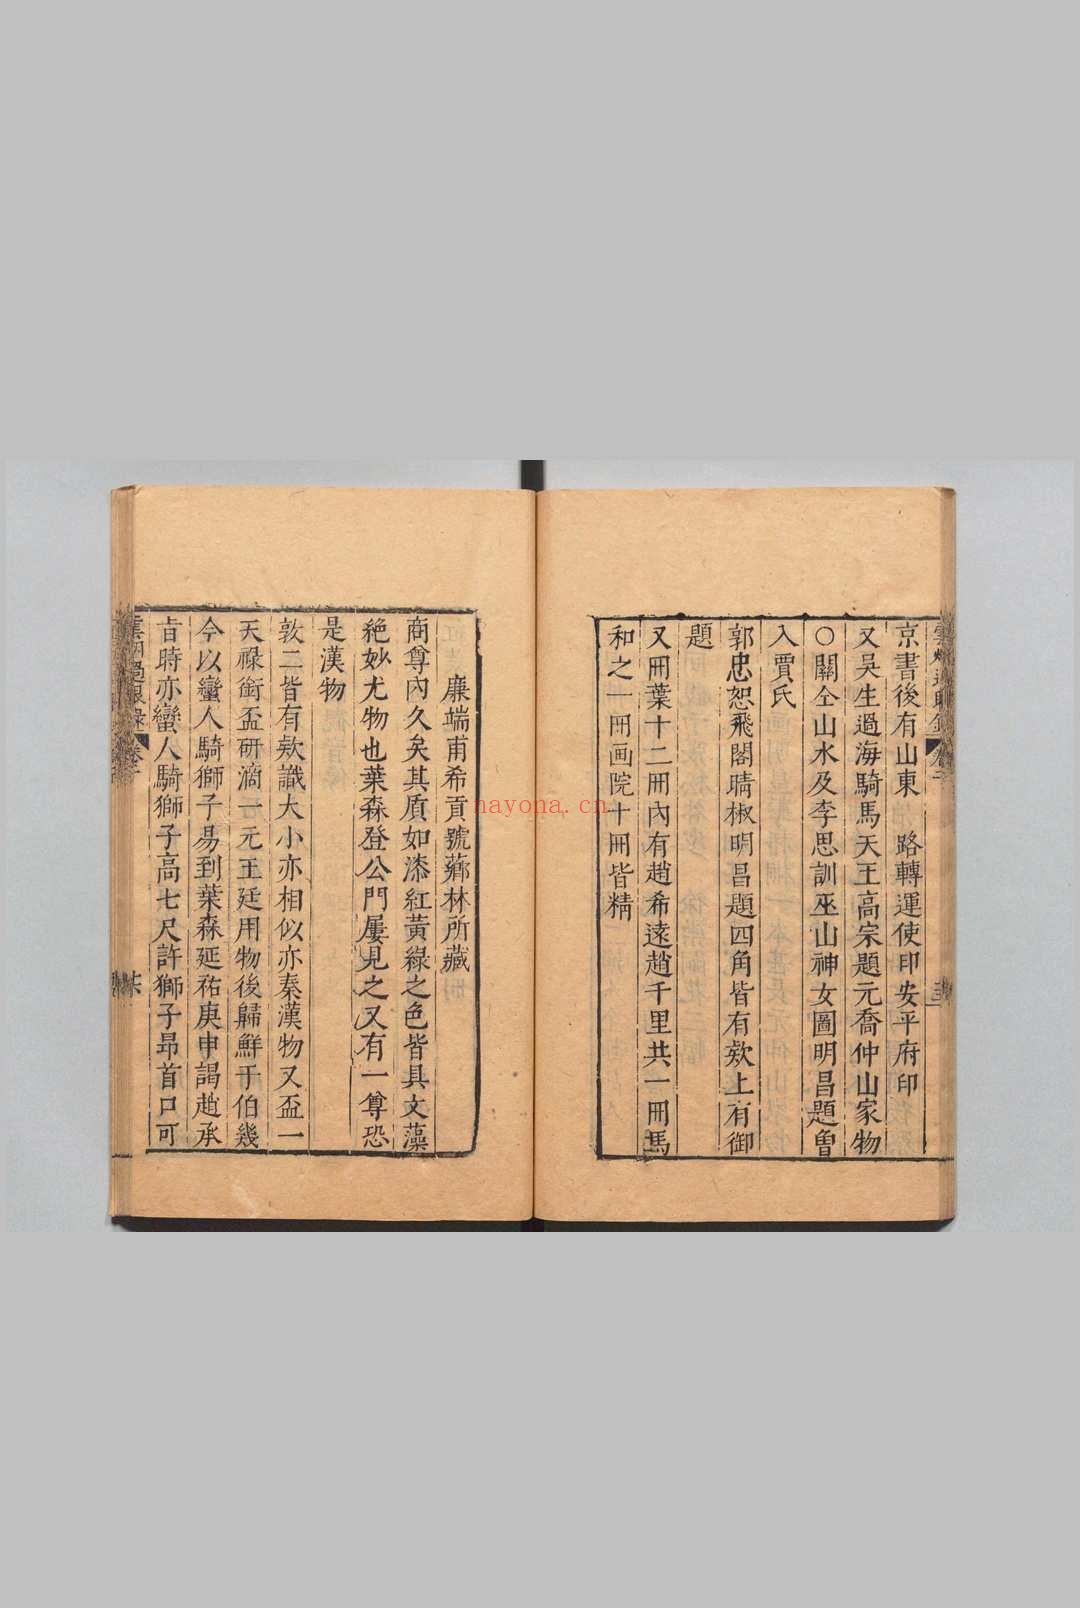 京書後有山東 路轉運使印安平府印
又吳生過海騎馬天王高宗題元喬仲山家物
○關仝山水及李思訓巫山神女圖明昌題曾
入賈氏
郭忠恕飛閣晴椒明昌題四角皆有欵上有御
題
又冊葉十二冊內有趙希遠趙千里共一冊馬
和之一冊画院十冊皆精
廉端甫希貢號薌林所藏
商尊內久矣其質如漆紅黃綠之色皆具文藻
絕妙尤物也葉森登公門屢見之又有一尊恐
是漢物
敦二皆有欵識大小亦相似亦秦漢物又盃一
天祿銜盃研滴一元王廷用物後歸鮮于伯幾
今以蠻人騎獅子易到葉森延祐庚申謁趙承
旨時亦蠻人騎獅子高七尺許獅子昂首口可
雲烟過眼錄
nayona.cn